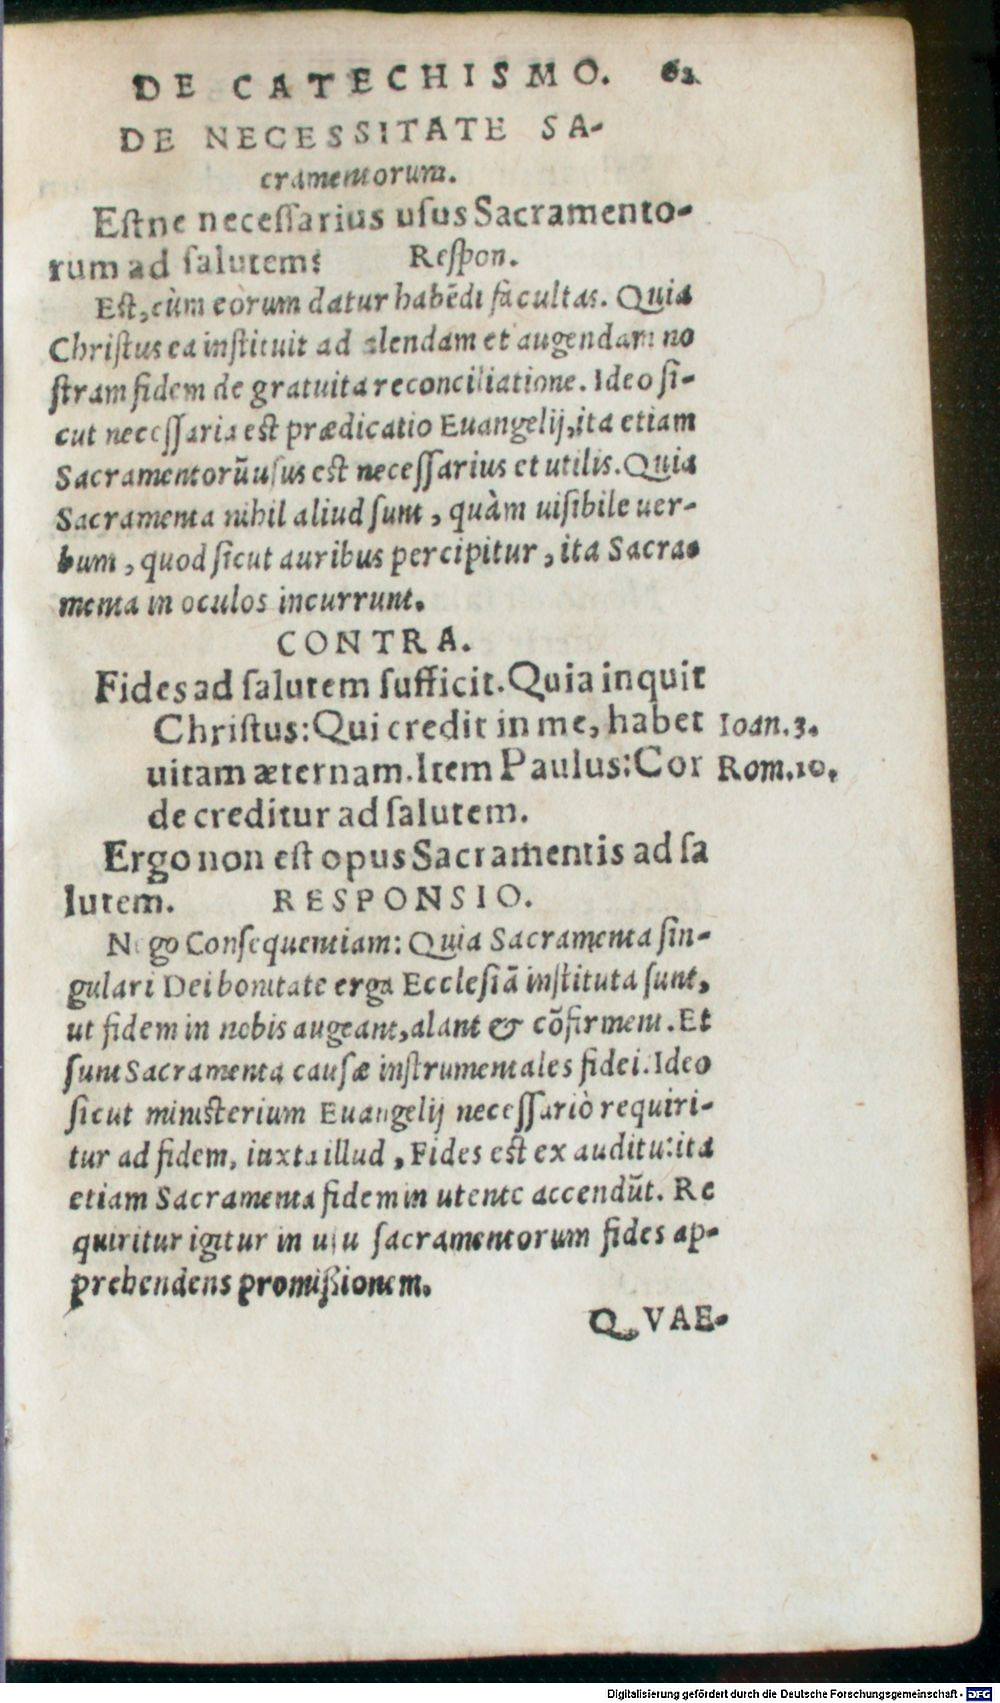 DE CATECHISMO. 62
DE NECESSITATE SA-
cramentorum.
Estne necessarius usus Sacramento-
rum ad salutem? Respon.
Est, cùm eòrum datur habēdi facultas. Quia
Christus ea instituit ad alendam et augendam no
stram fidem de gratuita reconciliatione. Ideo si-
cut necessaria est prædicatio Euangelij, ita etiam
Sacramentorū usus est necessarius et utilis. Quia
Sacramenta nihil aliud sunt, quàm uisibile uer-
bum, quod sicut auribus percipitur, ita Sacra-
menta in oculos incurrunt.
CONTRA.
Fides ad salutem sufficit. Quia inquit
Christus: Qui credit in me, habet Ioan. 3.
uitam æternam. Item Paulus: Cor Rom. 10.
de creditur ad salutem.
Ergo non est opus Sacramentis ad sa
lutem. RESPONSIO.
Nego Consequentiam: Quia Sacramenta sin-
gulari Dei bonitate erga Ecclesiā instituta sunt,
ut fidem in nobis augeant, alant & cōfirment. Et
sunt Sacramenta causæ instrumentales fidei. Ideo
sicut ministerium Euangelij necessariò requiri-
tur ad fidem, iuxta illud, Fides est ex auditu: ita
etiam Sacramenta fidem in utente accendūt. Re
quiritur igitur in usu sacramentorum fides ap-
prehendens promißionem.
QVAE-
Digitalisierung gefördert durch die Deutsche Forschungsgemeinschaft - DFG